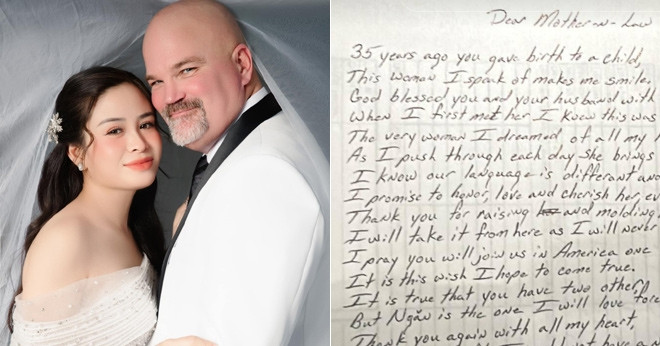 Dear Mother-n-Law
35 years ago you gave birth to a child,
This woman I speak of makes me smile.
God blessed you and your husband with
When I first met her I knew this was
The very woman I dreamed of all my
As I push through each day she brings
I know our language is different and
I promise to honor, love and cherish her, ev
Thank you for raising her and molding
I will take it from here as I will never
I pray you will join us in America one
It is this wish I hope to come true.
It is true that you have two other
But Ngân is the one I will love fore
Thank you again with all my heart,